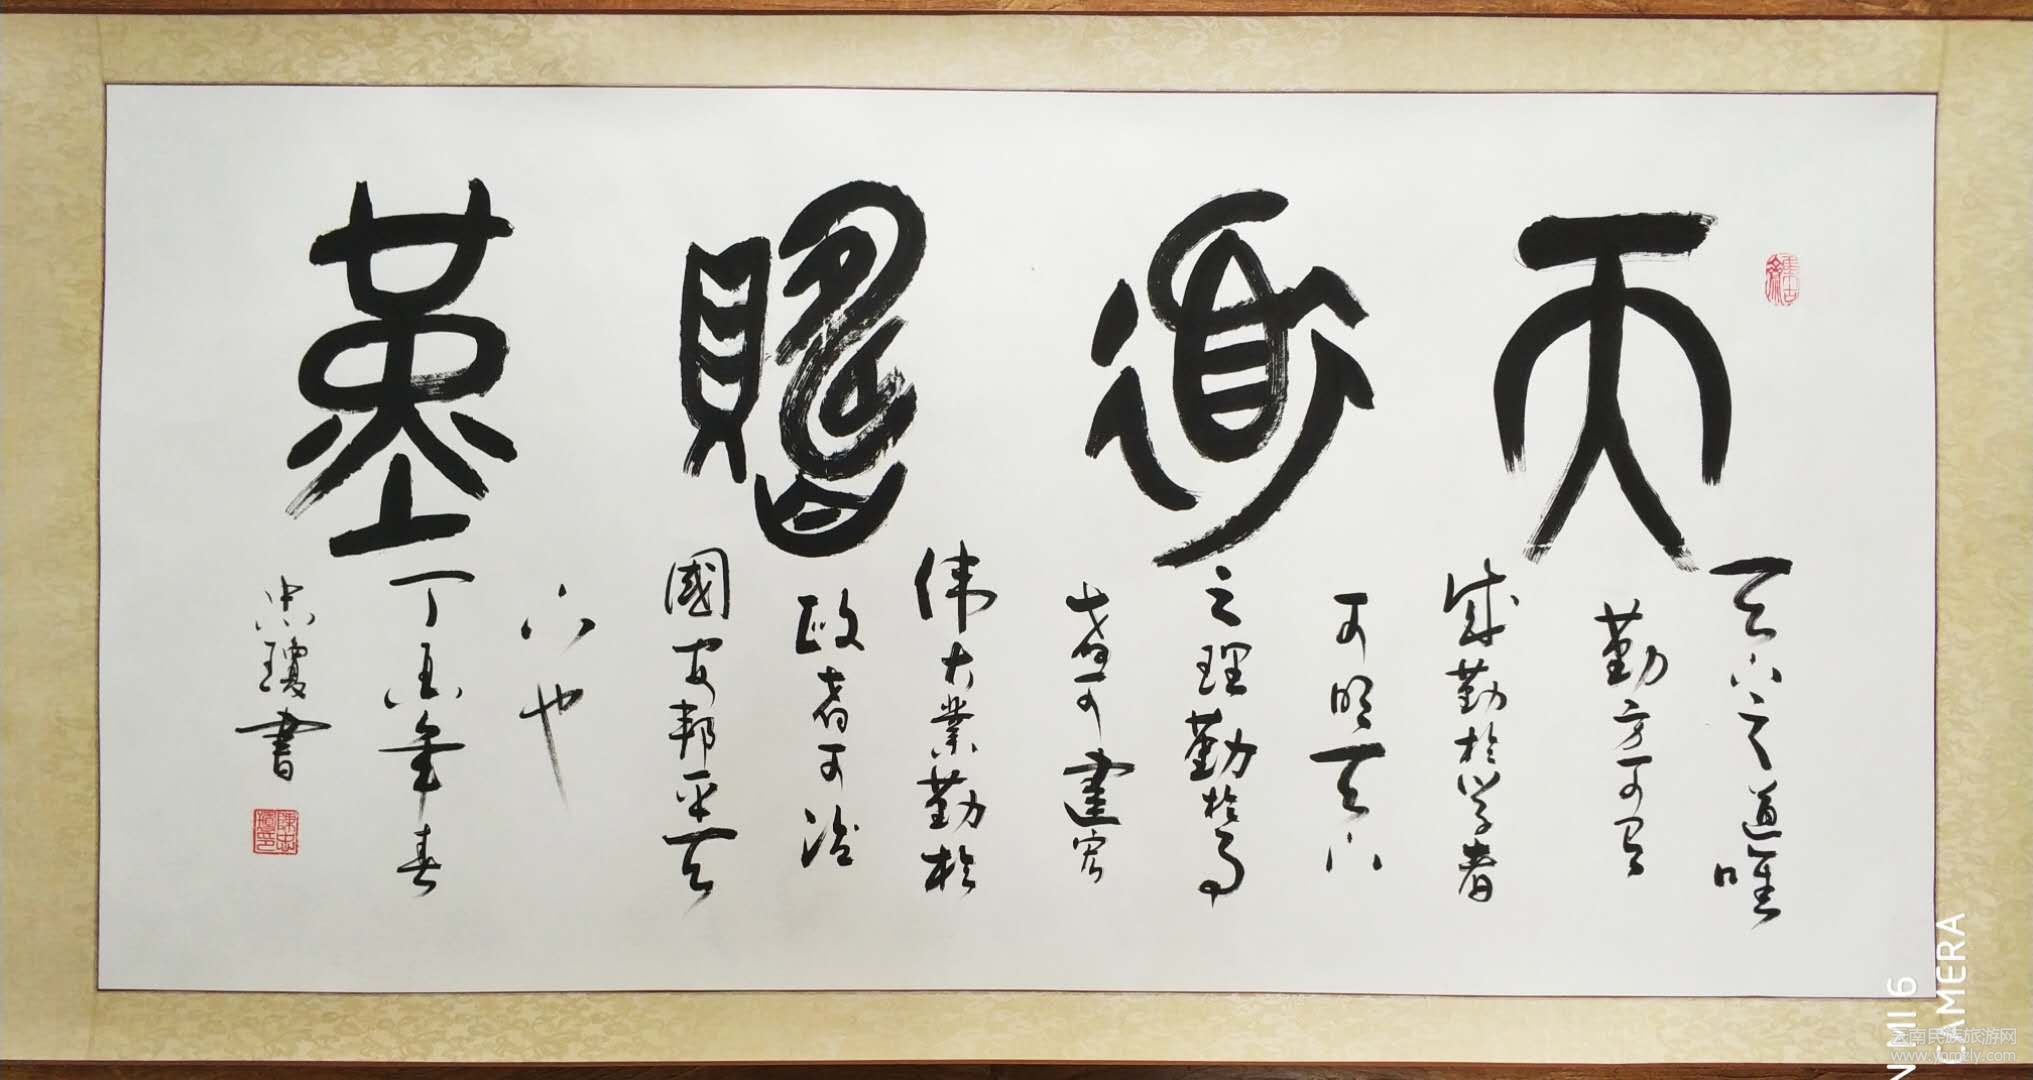 天道酬勤
天下之道唯
勤方可有
成勤於学者
可明天下
之理勤於事
者可建宏
伟大業勤於
政者可治
國安邦平天
下也
丁酉年春
忠瓊書
MI 6
CAMERA
云南民族旅游网
www.ynmzly.com